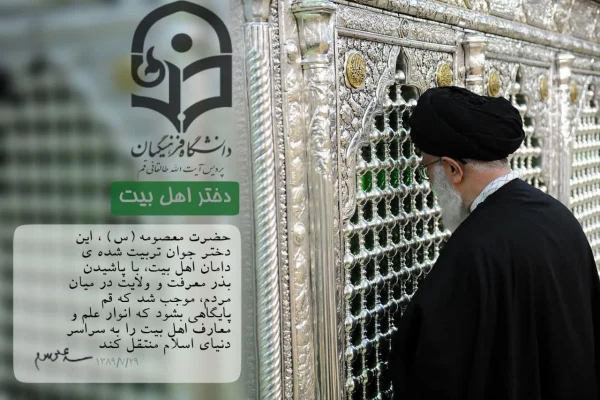 دانشگاه فرهنگیان
پردیس آیت الله طالقانی قم
دختر اهل بیت
حضرت معصومه (س) ، این
دختر جوان تربیت شده ی
دامان اهل بیت، با پاشیدن
بذر معرفت و ولایت در میان
مردم، موجب شد که قم
پایگاهی بشود که انوار علم و
معارف اهل بیت را به سراسر
دنیای اسلام منتقل کند
۱۳۸۹/۷/۲۹